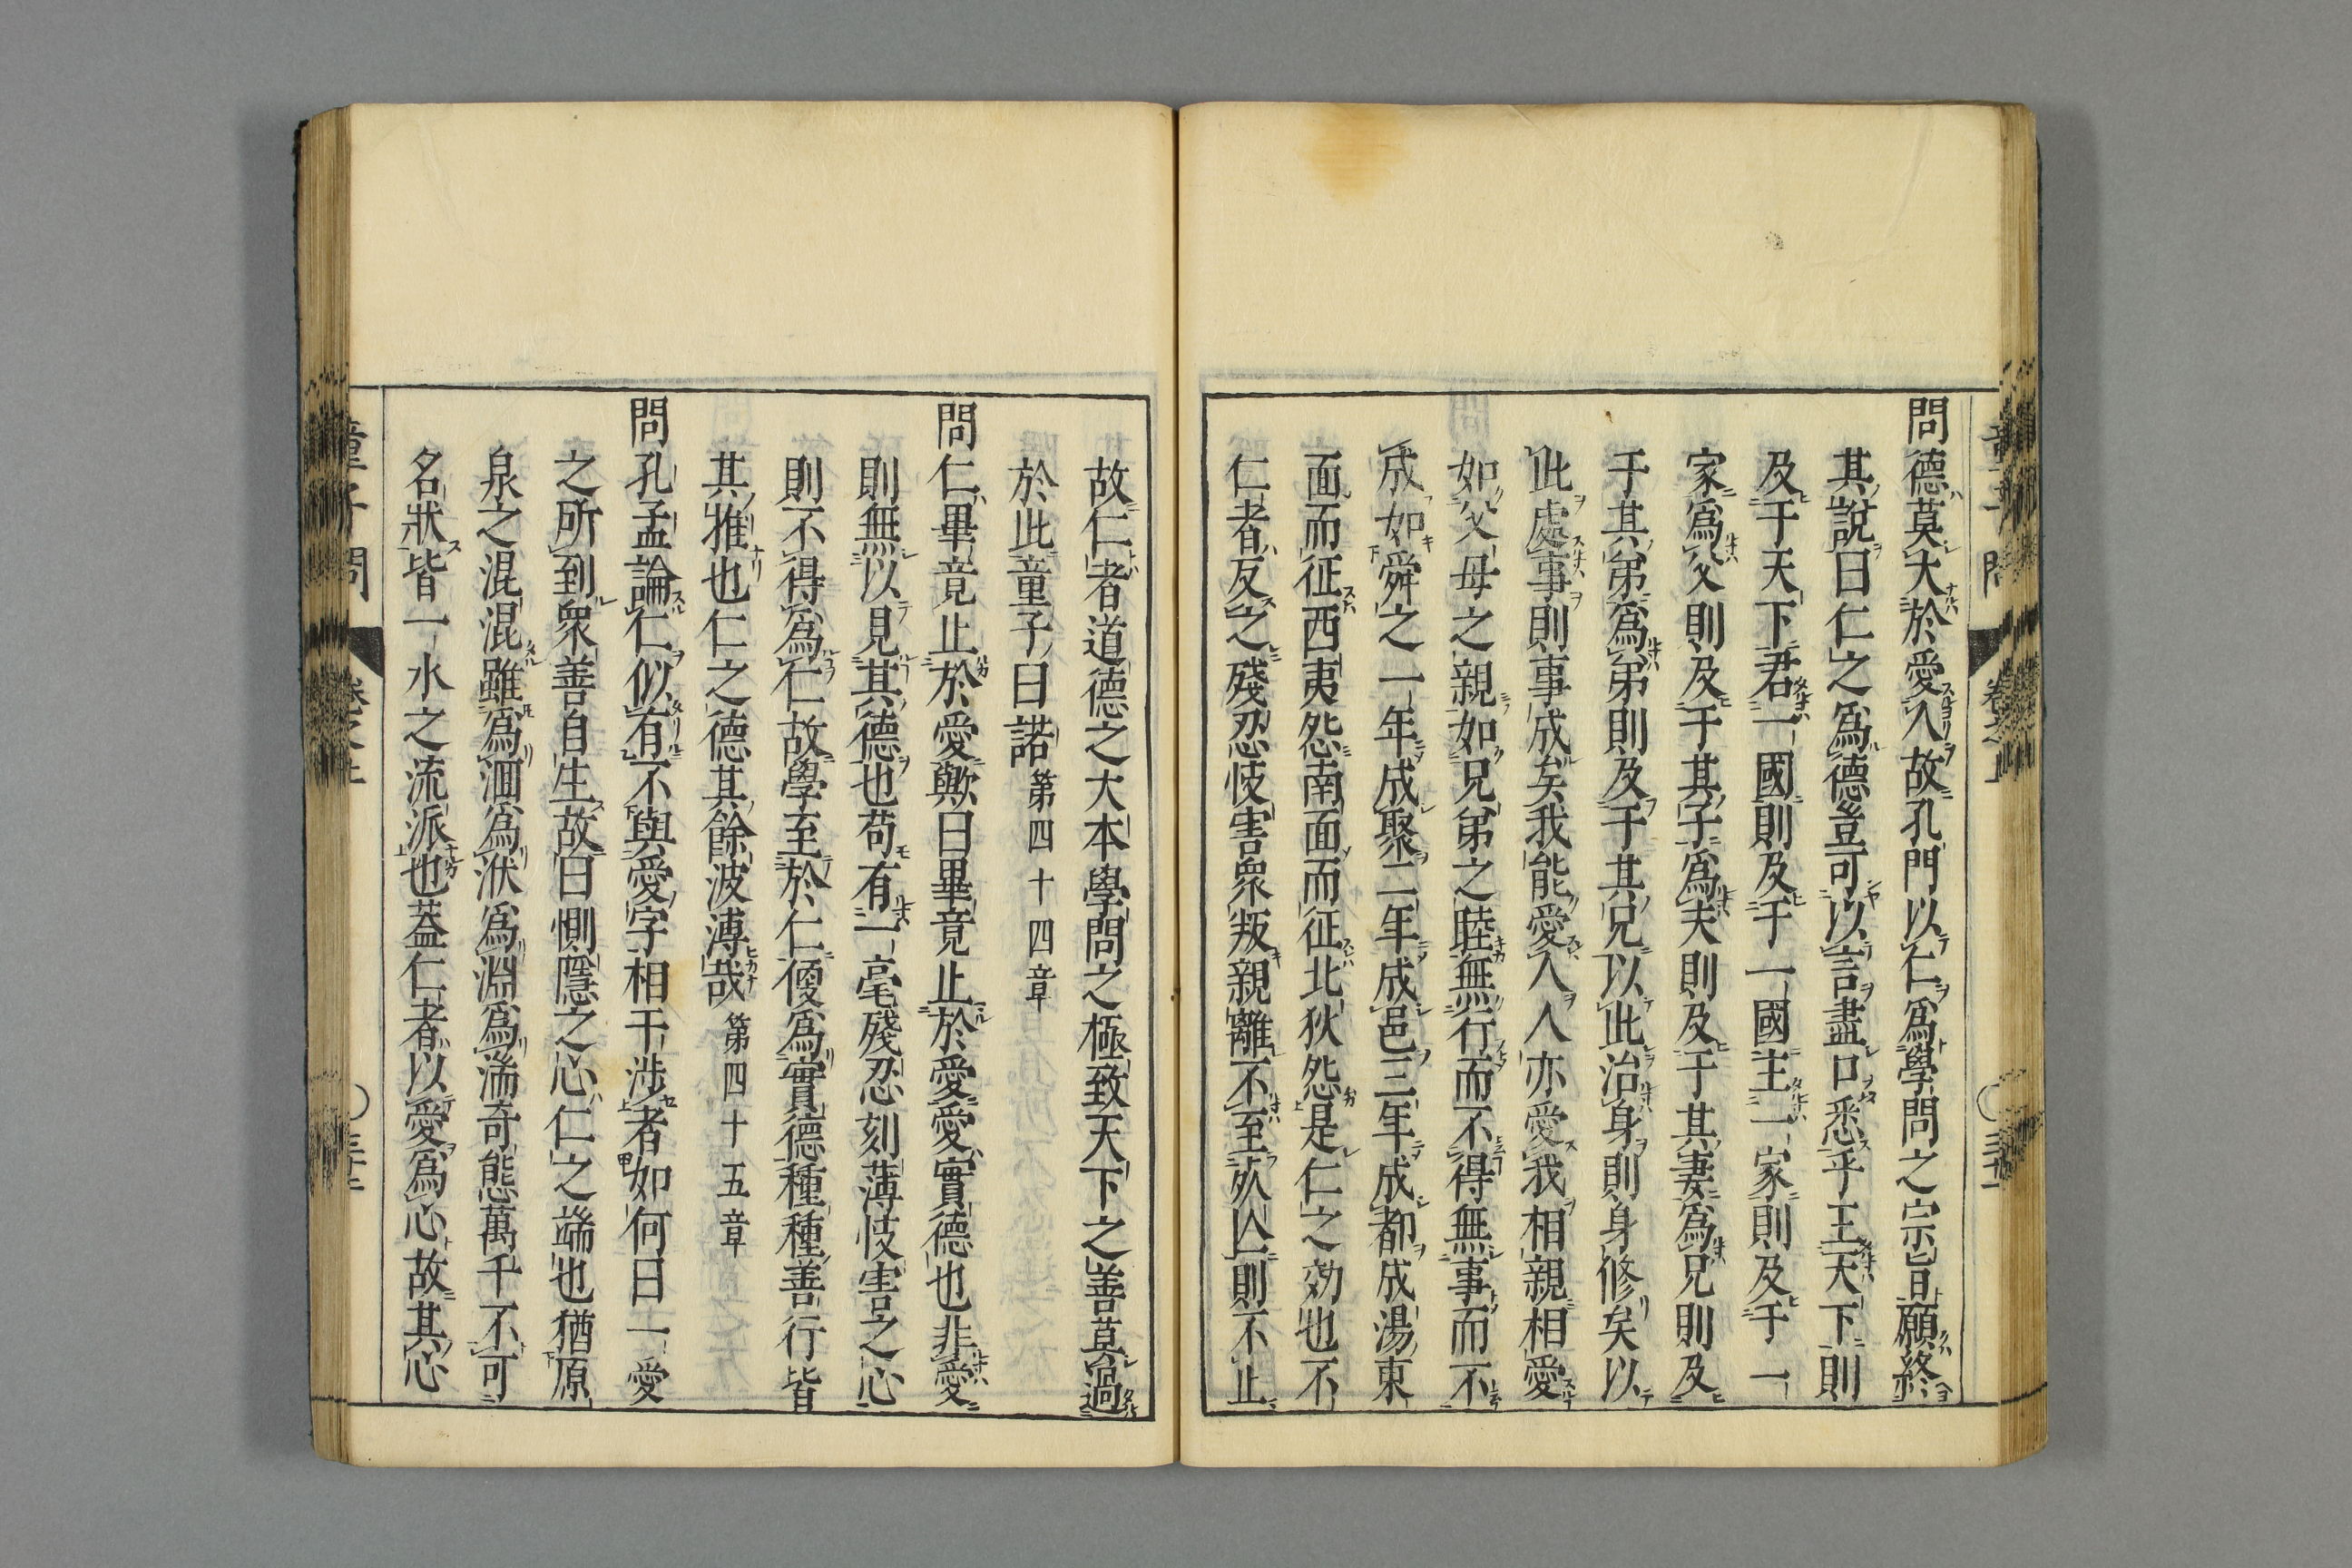 問德莫大於愛人故孔門以仁爲學問之宗旨願終
其說曰仁之爲德豈可以言盡口悉乎王天下則
及于天下君一國則及于一國主一家則及于一
家爲父則及于其子爲夫則及于其妻爲兄則及
于其弟爲弟則及于其兄以此治身則身修矣以
此處事則事成矣我能愛人人亦愛我相親相愛
如父母之親如兄弟之睦無行而不得無事而不
成如舜之一年成聚二年成邑三年成都成湯東
面而征西夷怨南面而征北狄怨是仁之効也不
仁者反之殘忍忮害衆叛親離不至於亾則不止
故仁者道德之大本學問之極致天下之善莫過
於此童子曰諾 第四十四章
問仁畢竟止於愛歟曰畢竟止於愛愛實德也非愛
則無以見其德也苟有一毫殘忍刻薄忮害之心
則不得爲仁故學至於仁便爲實德種種善行皆
其推也仁之德其餘波溥哉 第四十五章
問孔孟論仁似有不與愛字相干涉者如何曰一愛
之所到衆善自生故曰惻隱之心仁之端也猶原
泉之混混雖爲洄爲洑爲淵爲湍奇態萬千不可
名狀皆一水之流派也蓋仁者以愛爲心故其心
童子問 卷之上